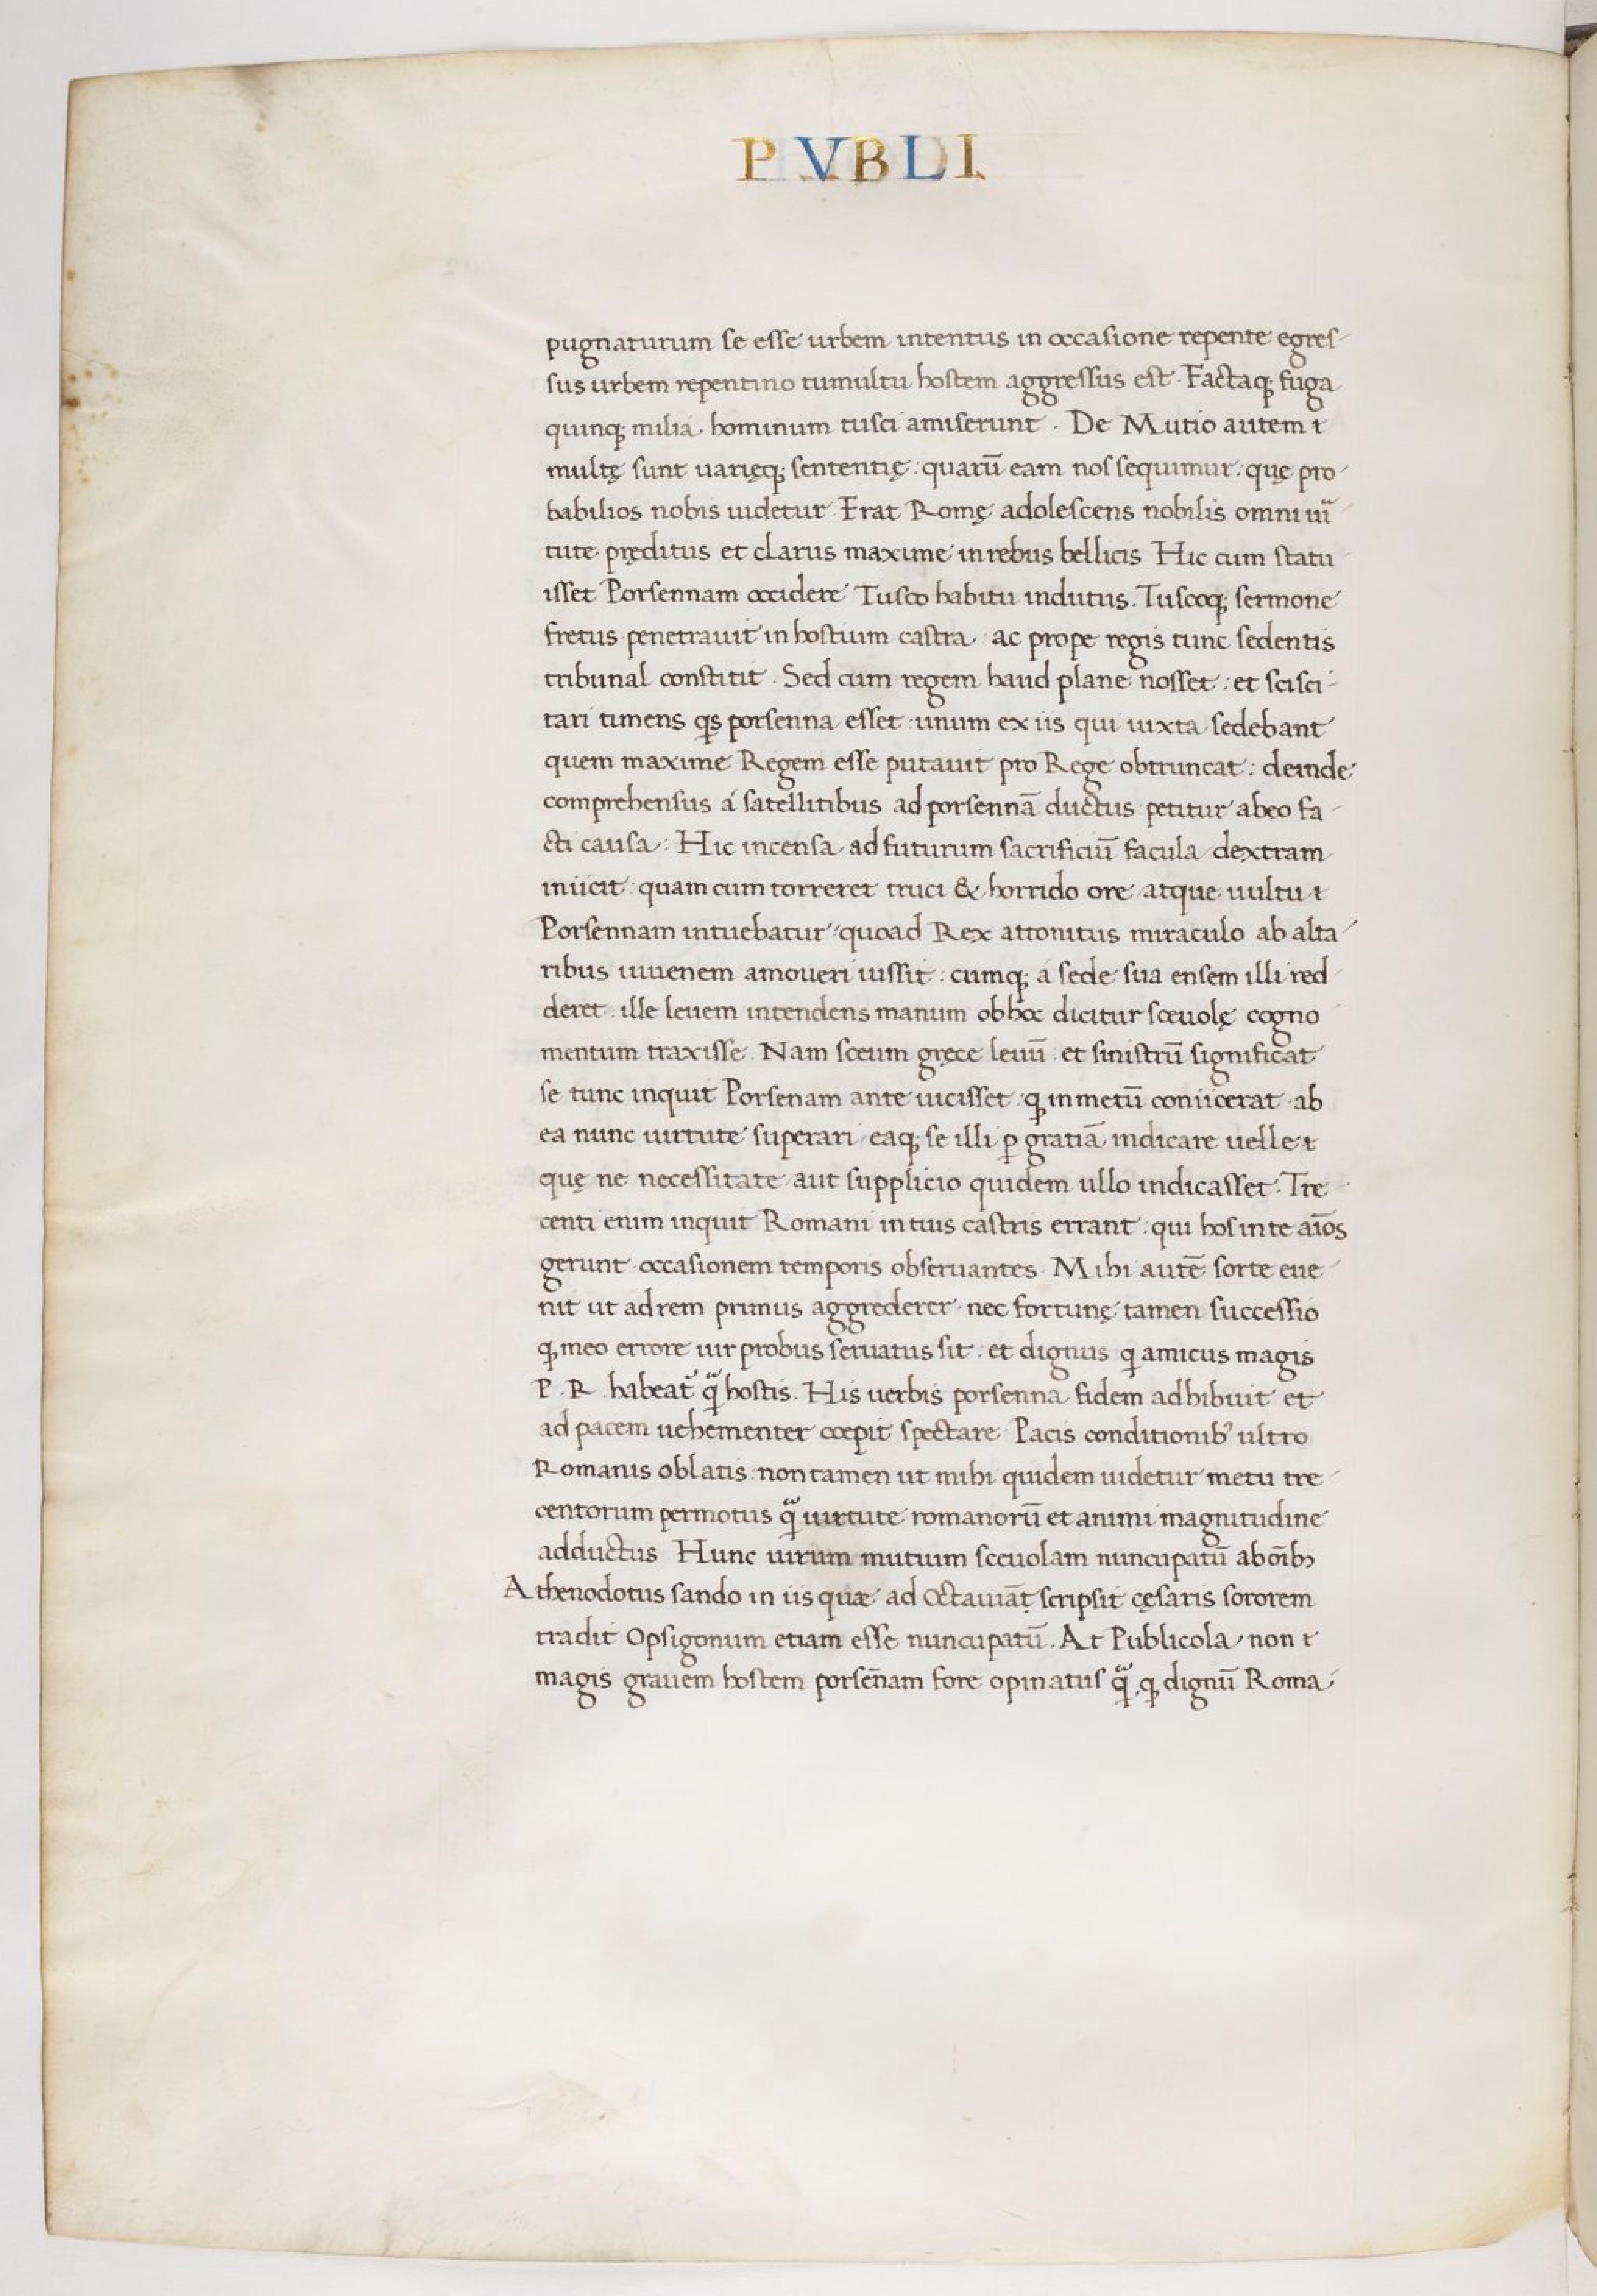 PVBLI
pugnaturum se esse urbem intentus in occasione repente egres-
sus urbem repentino tumultu hostem aggressus est. Factaq; fuga
quinq; milia hominum tusci amiserunt. De Mutio autem
multę sunt uarięq; sententię: quarū eam nos sequimur: quę pro-
babilios nobis uidetur. Erat Romę adolescens nobilis omni uir-
tute pręditus et clarus maxime in rebus bellicis Hic cum statu-
isset Porsennam occidere Tusco habitu indutus. Tuscoq; sermone
fretus penetrauit in hostium castra ac prope regis tunc sedentis
tribunal constitit. Sed cum regem haud plane nosset: et scisci-
tari timens qs porsenna esset: unum ex iis qui iuxta sedebant
quem maxime Regem esse putauit pro Rege obtruncat: deinde
comprehensus á satellitibus ad porsennā ductus petitur ab eo fa-
cti causa: Hic incensa ad futurum sacrificiū facula dextram
iniicit: quam cum torreret truci & horrido ore atque uultu
Porsennam intuebatur quoad Rex attonitus miraculo ab alta-
ribus iuuenem amoueri iussit: cumq; a sede sua ensem illi red
deret: ille leuem intendens manum ob hoc dicitur sceuolę cogno
mentum traxisse. Nam sceum gręce leuū et sinistrū significat
se tunc inquit Porsenam ante uicisset: q in metū coniicerat ab
ea nunc uirtute superari eaq; se illi p gratiā indicare uelle
quę ne necessitate aut supplicio quidem ullo indicasset: Tre-
centi enim inquit Romani in tuis castris errant: qui hos in te aīos
gerunt occasionem temporis obseruantes. Mihi autē sorte eue-
nit ut ad rem primus aggrederer nec fortunę tamen successio
q meo errore uir probus seruatus sit: et dignus q amicus magis
P. R. habeat q̃ hostis. His uerbis porsenna fidem adhibuit et
ad pacem uehementer coepit spectare Pacis conditionib' ultro
Romanis oblatis: non tamen ut mihi quidem uidetur metu tre-
centorum permotus q̃ uirtute romanorū et animi magnitudine
adductus Hunc uirum mutium sceuolam nuncupatū ab oīb;
Athenodotus sando in iis quæ ad Octauiāt scripsit cęsaris sororem
tradit Opsigonum etiam esse nuncupatū. At Publicola non
magis grauem hostem porseñam fore opinatus q̃ q dignū Roma-